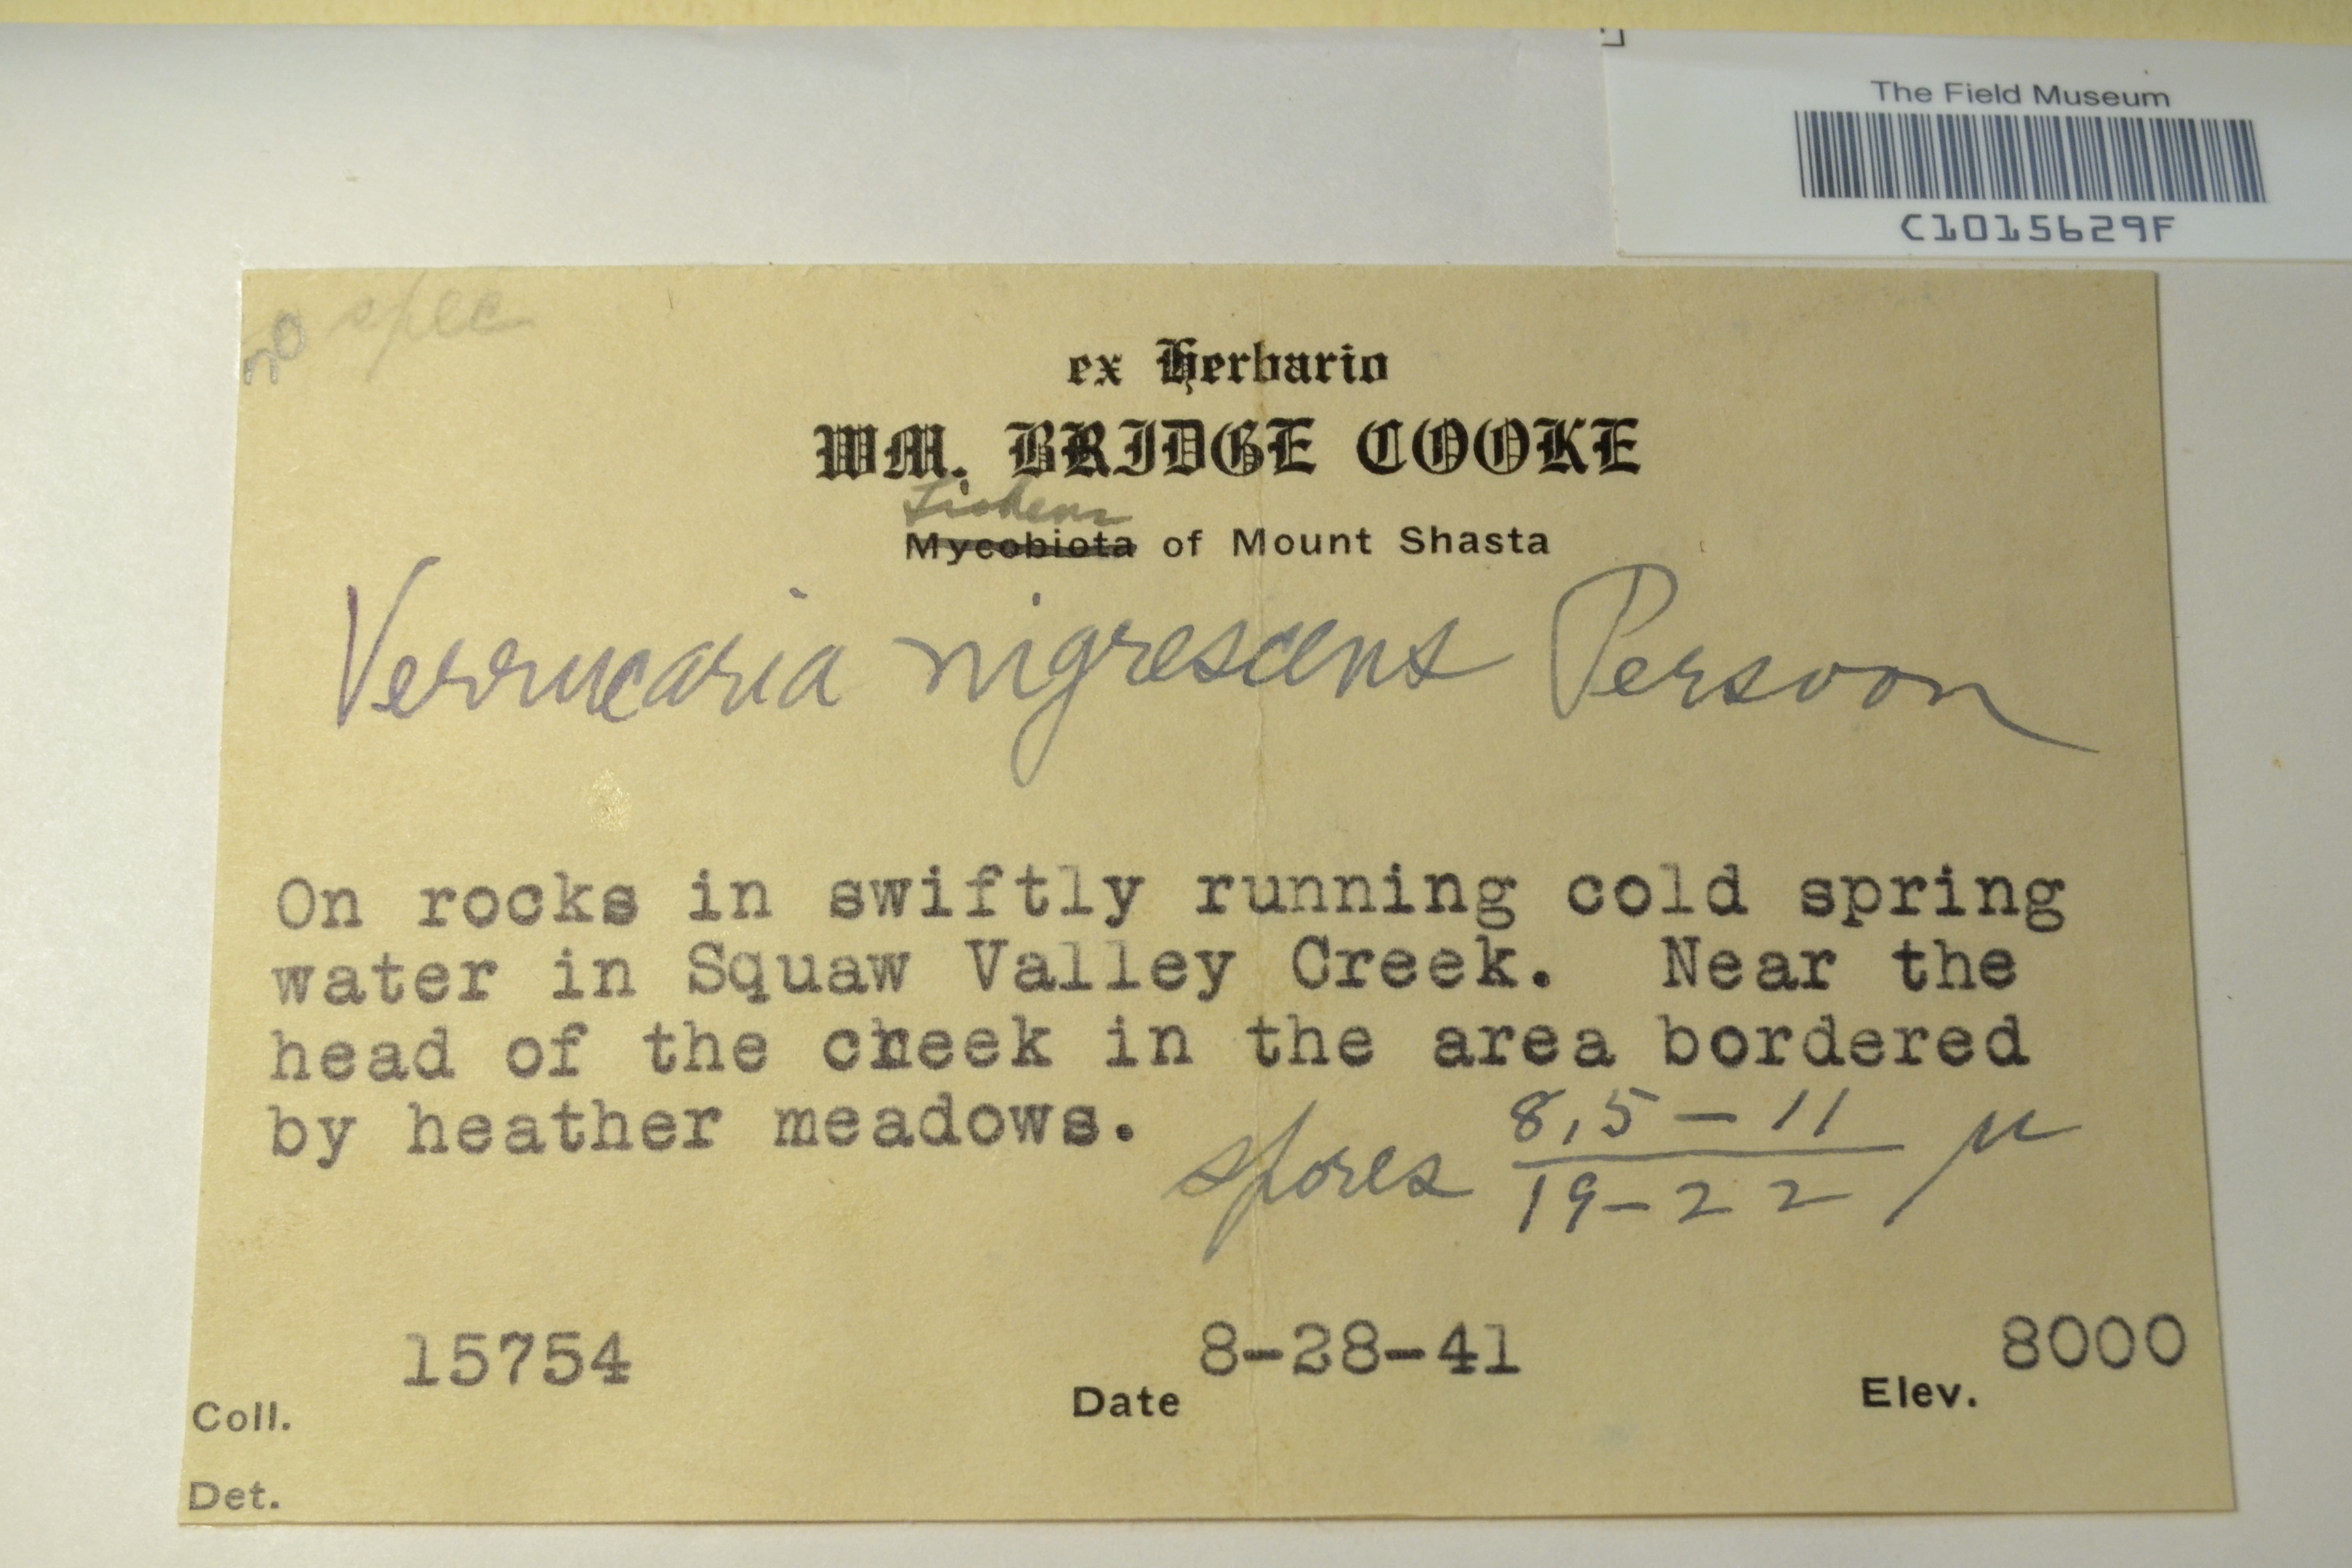 The Field Museum
C1015629F
no spec
ex Herbario
WM. BRIDGE COOKE
Lichens
Mycobiota of Mount Shasta
Verrucaria nigrescens Persoon
On rocks in swiftly running cold spring
water in Squaw Valley Creek. Near the
head of the creek in the area bordered
by heather meadows.
spores 8,5-11 / 19-22 μ
15754 8-28-41 8000
Coll. Date Elev.
Det.